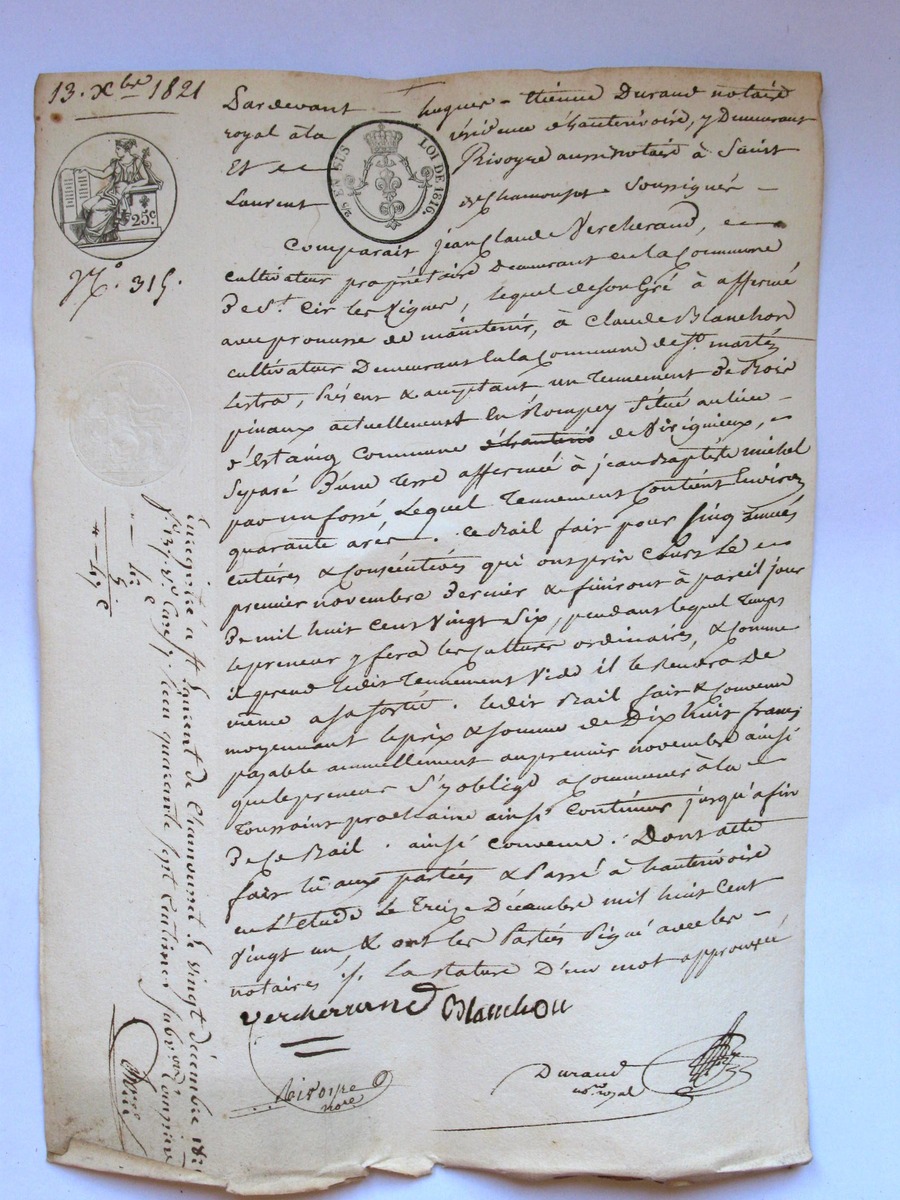 13. Xbre 1821
25c
N.o 315.
25 EN SUS LOI DE 1816.
Pardevant hugues-étienne Durand notaire
royal à la résidence d'hauterivoire, y Demeurant
Et Me Rivoyre aussi notaire à Saint
Laurent deChamousset Soussignés
Comparait jean Claude Vercherand,
cultivateur propriétaire demeurant en la Commune
De St. Cir les Vignes, lequel de son Gré à affermé
avec promesse de maintenir, à Claude Blanchon
cultivateur Demeurant en la Commune de St. martin
Lestra, présent & acceptant un Tennement De Bois
pinaux actuellement En Rompey Situé au lieu
d'Estaing Commune de Virignieux,
Separé D'une Terre affermée à jean Baptiste michel
par un fossé Lequel Tennement Contient Environ
quarante ares. Ce Bail fait pour Cinq années
entières & Consécutives qui ont pris Cours Le
premier novembre Dernier & finiront à pareil jour
De mil huit Cent Vingt Six, pendant lequel Temps
le preneur y fera les Cultures ordinaires, & Comme
il prend ledit Tennement Vide il le Rendra De
même a sa sortie. Ledit Bail fait & Convenu
moyennant le prix & Somme de Dix huit francs
payable annuellement au premier novembre ainsi
que le preneur S'y oblige a Commencer à la
Toussaint prochaine ainsi Continuer jusqu'a fin
De Ce Bail. ainsi Convenu. Dont acte
fait lû aux parties & Passé à hauterivoire
en L'etude Le Treize Décembre mil huit Cent
Vingt un, & ont les Parties Signé avec les
notaires ./. La rature D'un mot approuvée
Vercherand Blanchon
Rivoyre nore
Durand no.re royal
Enregistré à St Laurent de Chamousset le vingt décembre 1821
f.o 137 v.o Case 7 reçu quarante sept Centimes Subv.on Comprise